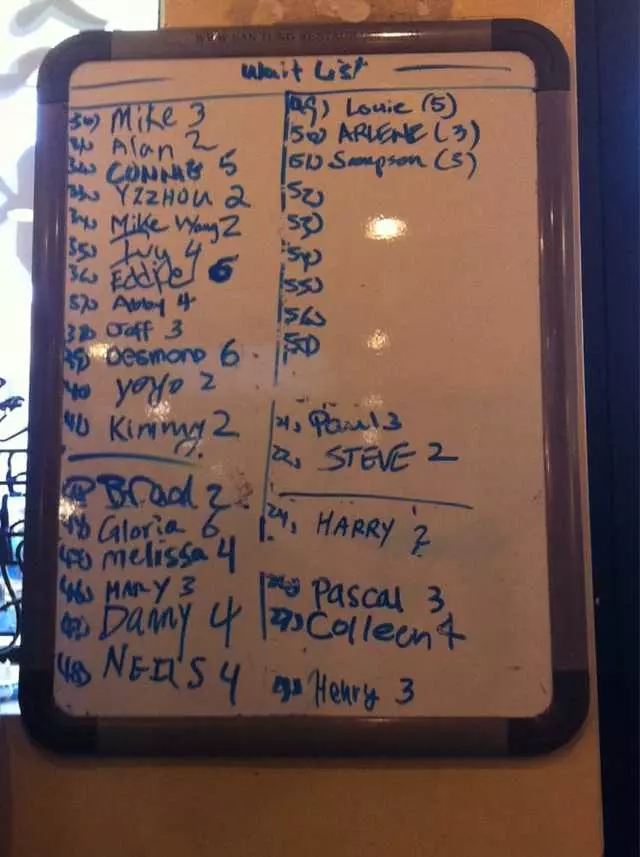 Wait List
30) Mike 3
31) Alan 2
32) CONNIE 5
33) YZZHOU 2
34) Mike Wang 2
35) Ivy 4
36) Eddie 6
37) Abby 4
38) Joff 3
39) Desmond 6
40) yoyo 2
41) Kimmy 2
Brad 2
Gloria 6
melissa 4
46) MARY 3
47) Danny 4
48) 4
49) Louie (5)
50) ARLENE (3)
51) Sampson (5)
52)
53)
54)
55)
56)
57)
21) Paul 3
22) STEVE 2
24) HARRY 2
Pascal 3
27) Colleen 4
Henry 3